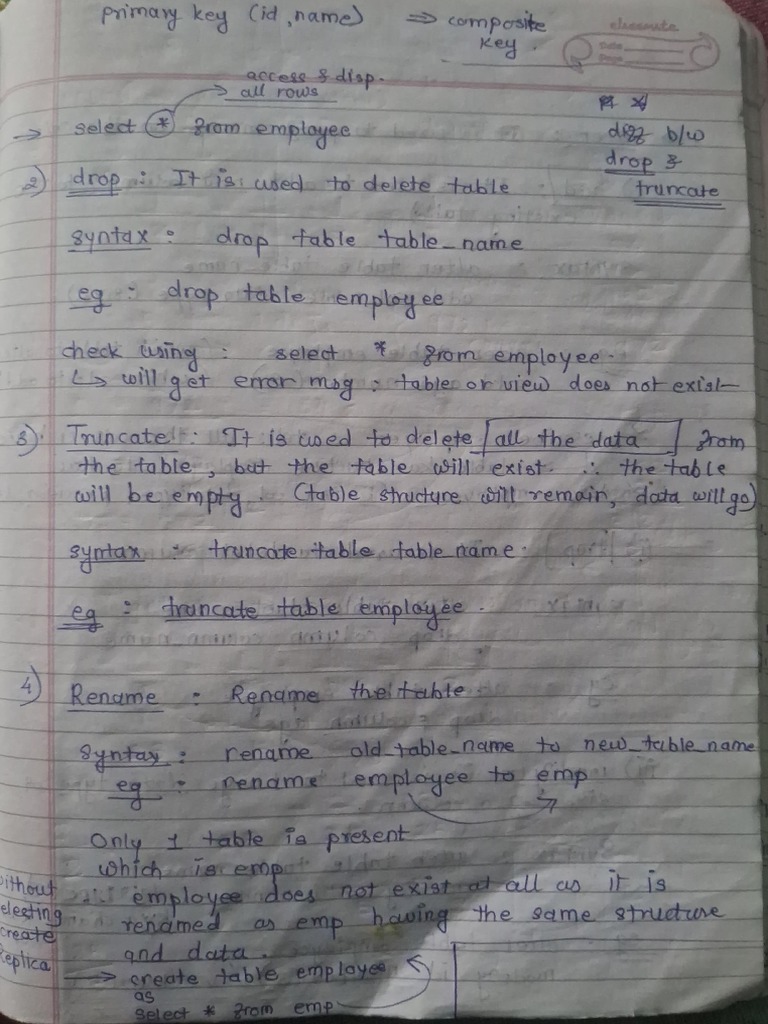 primary key (id, name) ⇒ composite
key.
access & disp.
all rows
→ select * from employee
diff b/w
drop &
truncate
2) drop : It is used to delete table
syntax : drop table table_name
eg : drop table employee
check using : select * from employee.
↳ will get error msg : table or view does not exist
3) Truncate : It is used to delete [all the data] from
the table, but the table will exist. ∴ the table
will be empty. (table structure will remain, data will go)
syntax : truncate table table_name.
eg : truncate table employee.
4) Rename : Rename the table
syntax : rename old_table_name to new_table_name
eg : rename employee to emp
Only 1 table is present
which is emp
employee does not exist at all as it is
renamed as emp having the same structure
and data.
create
→ create table employee
as
select * from emp